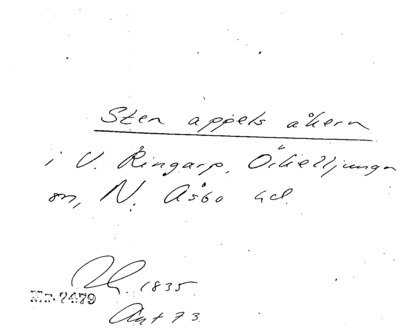 Sten appels åkern
i V. Ringarp, Örkelljunga
sn, N. Åsbo hd.
1835.
Nr. 7479
Ant 73.